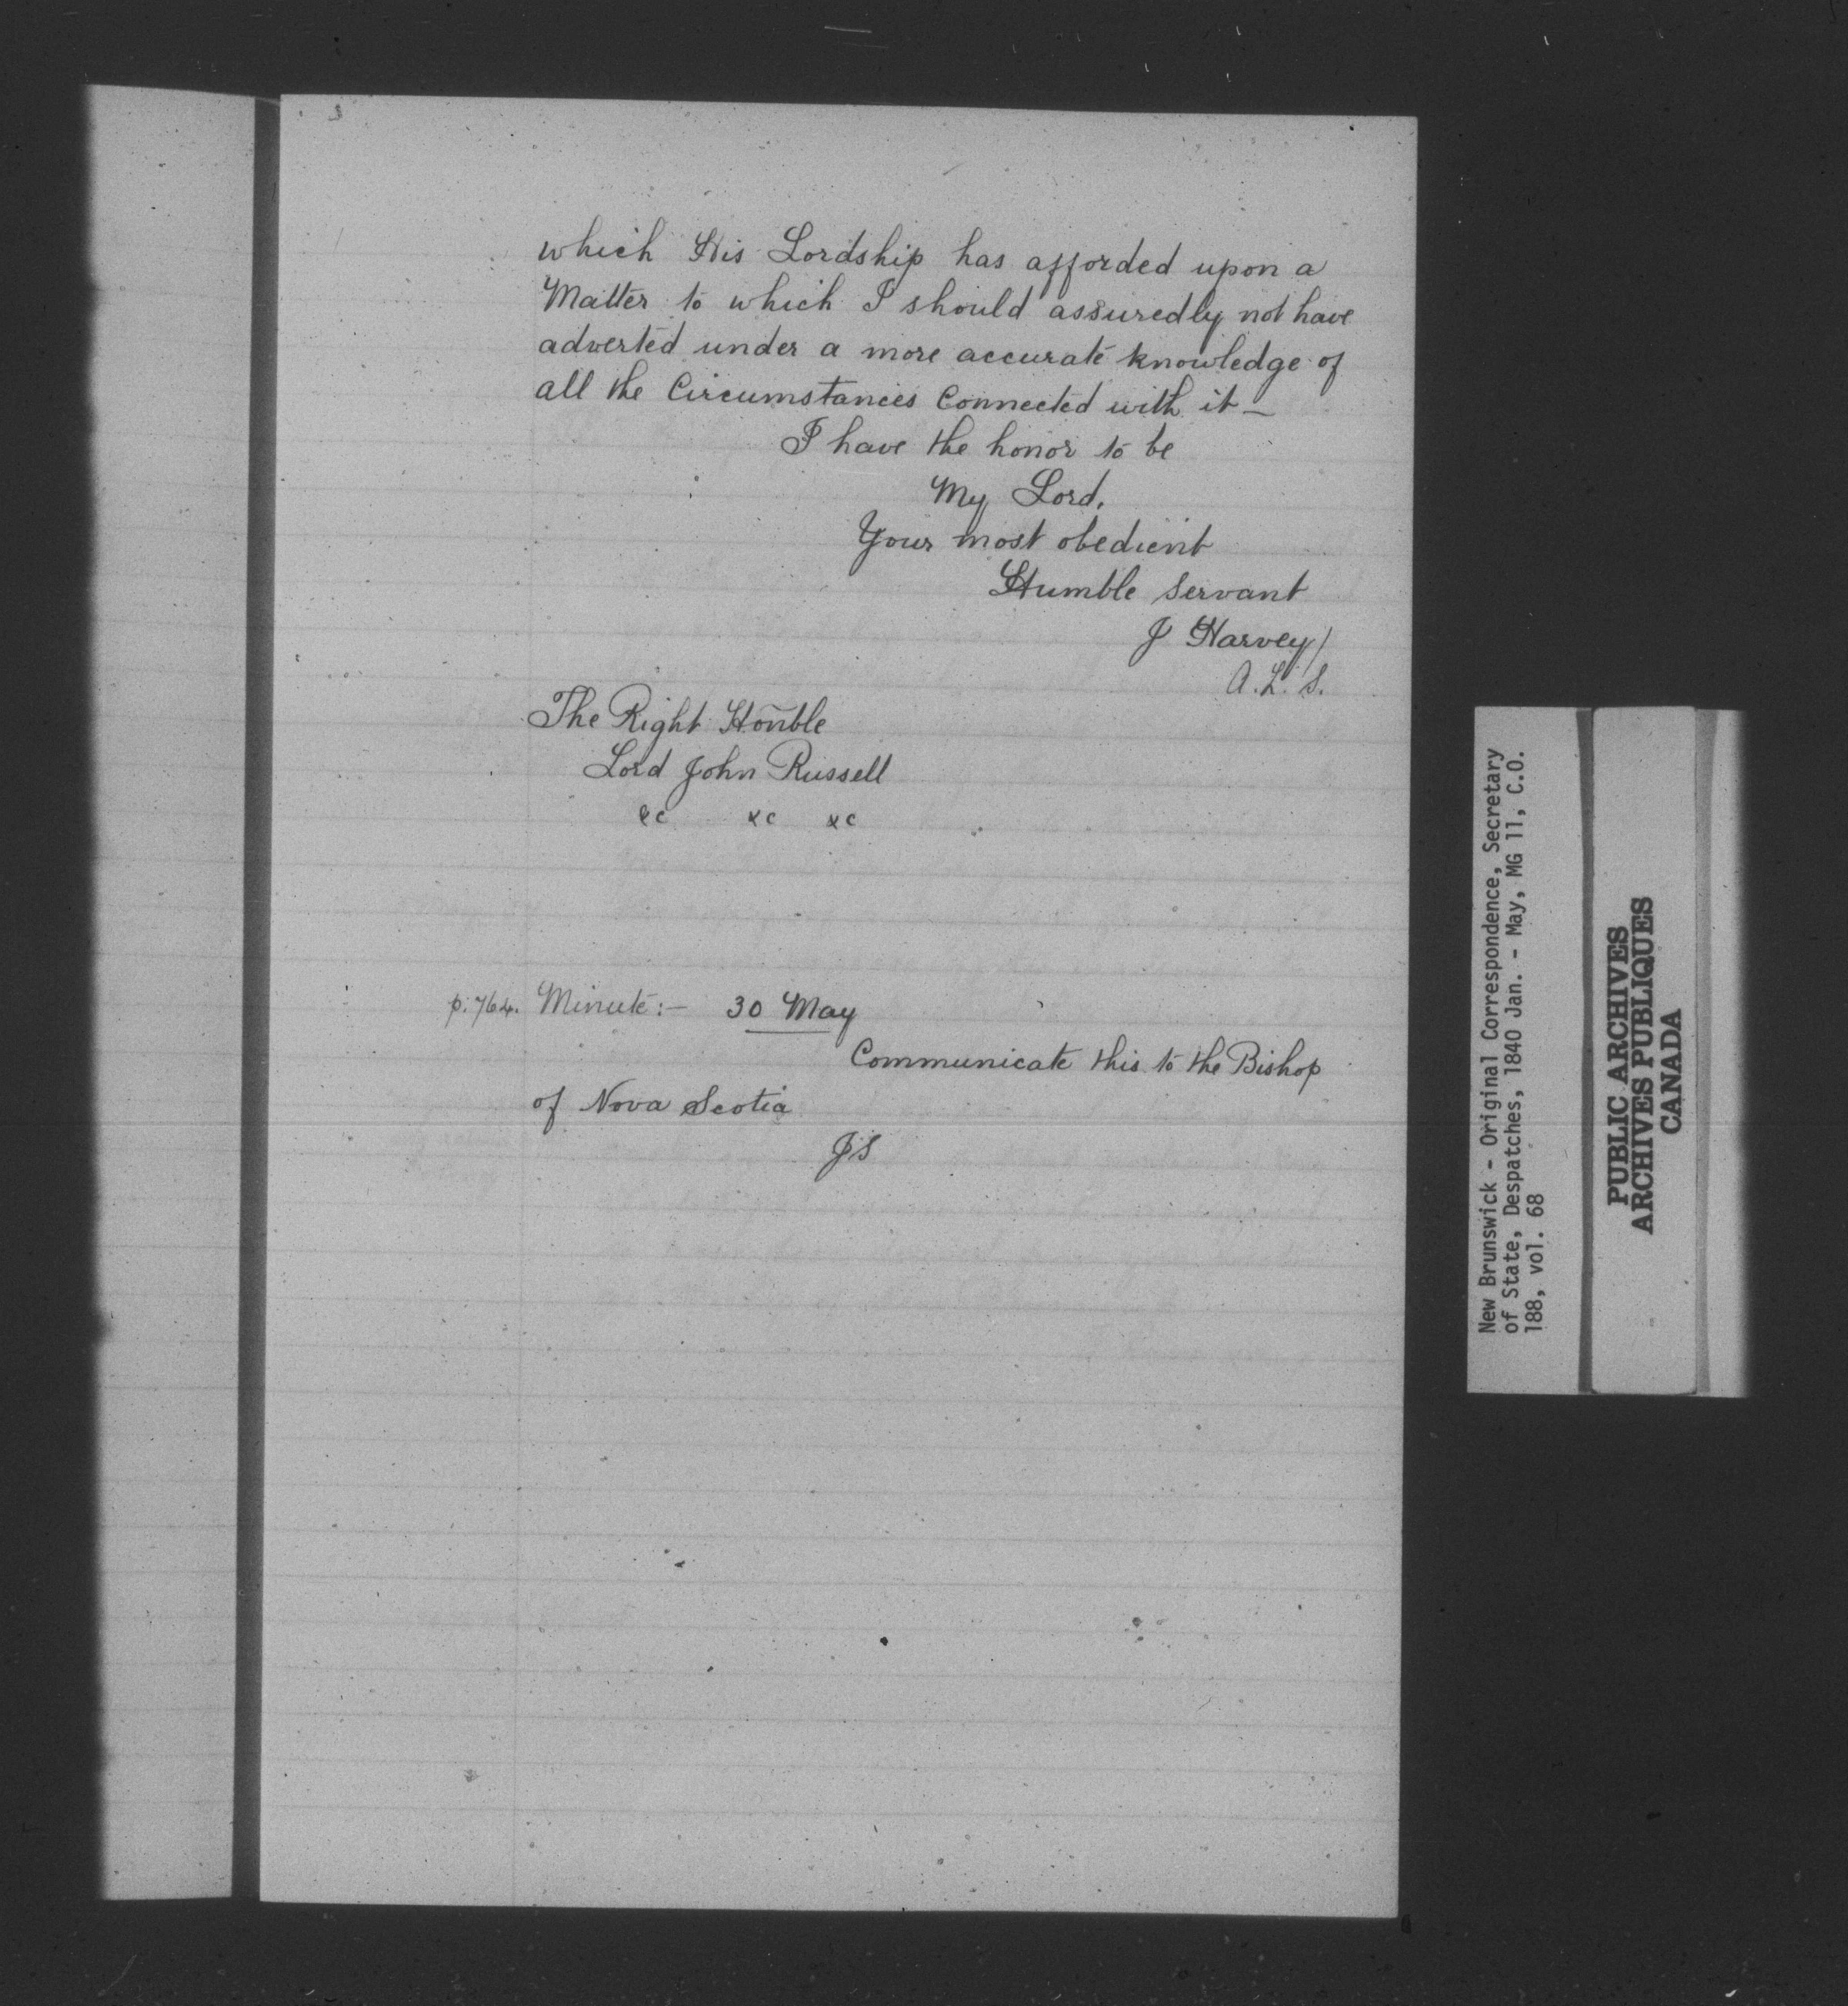 which His Lordship has afforded upon a
Matter to which I should assuredly not have
adverted under a more accurate knowledge of
all the Circumstances Connected with it —
I have the honor to be
My Lord,
Your most obedient
Humble Servant
J Harvey/
A. L. S.
The Right Honble
Lord John Russell
&c &c &c
p. 764. Minute :— 30 May
Communicate this to the Bishop
of Nova Scotia
JS
New Brunswick - Original Correspondence, Secretary
of State, Despatches, 1840 Jan. - May, MG 11, C.O.
188, vol. 68
PUBLIC ARCHIVES
ARCHIVES PUBLIQUES
CANADA